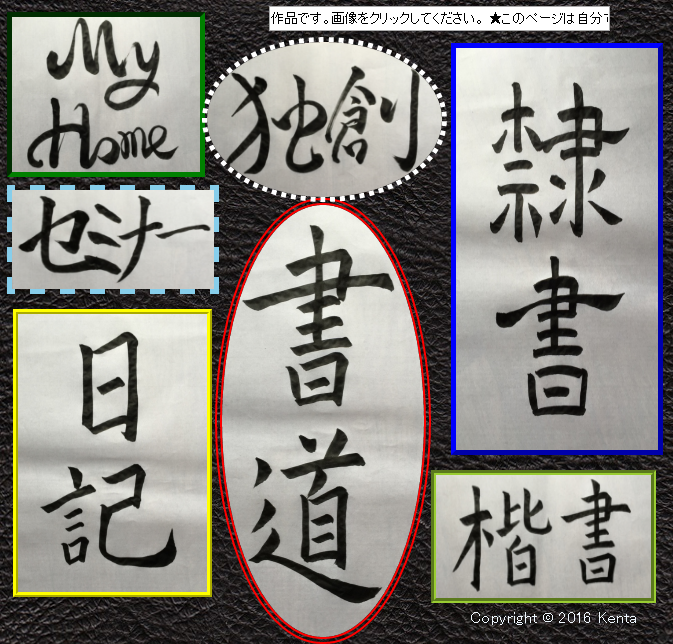 作品です。画像をクリックしてください。 ★このページは自分で
My
Home
独創
隷書
セミナー
書道
日記
楷書
Copyright © 2016 Kenta